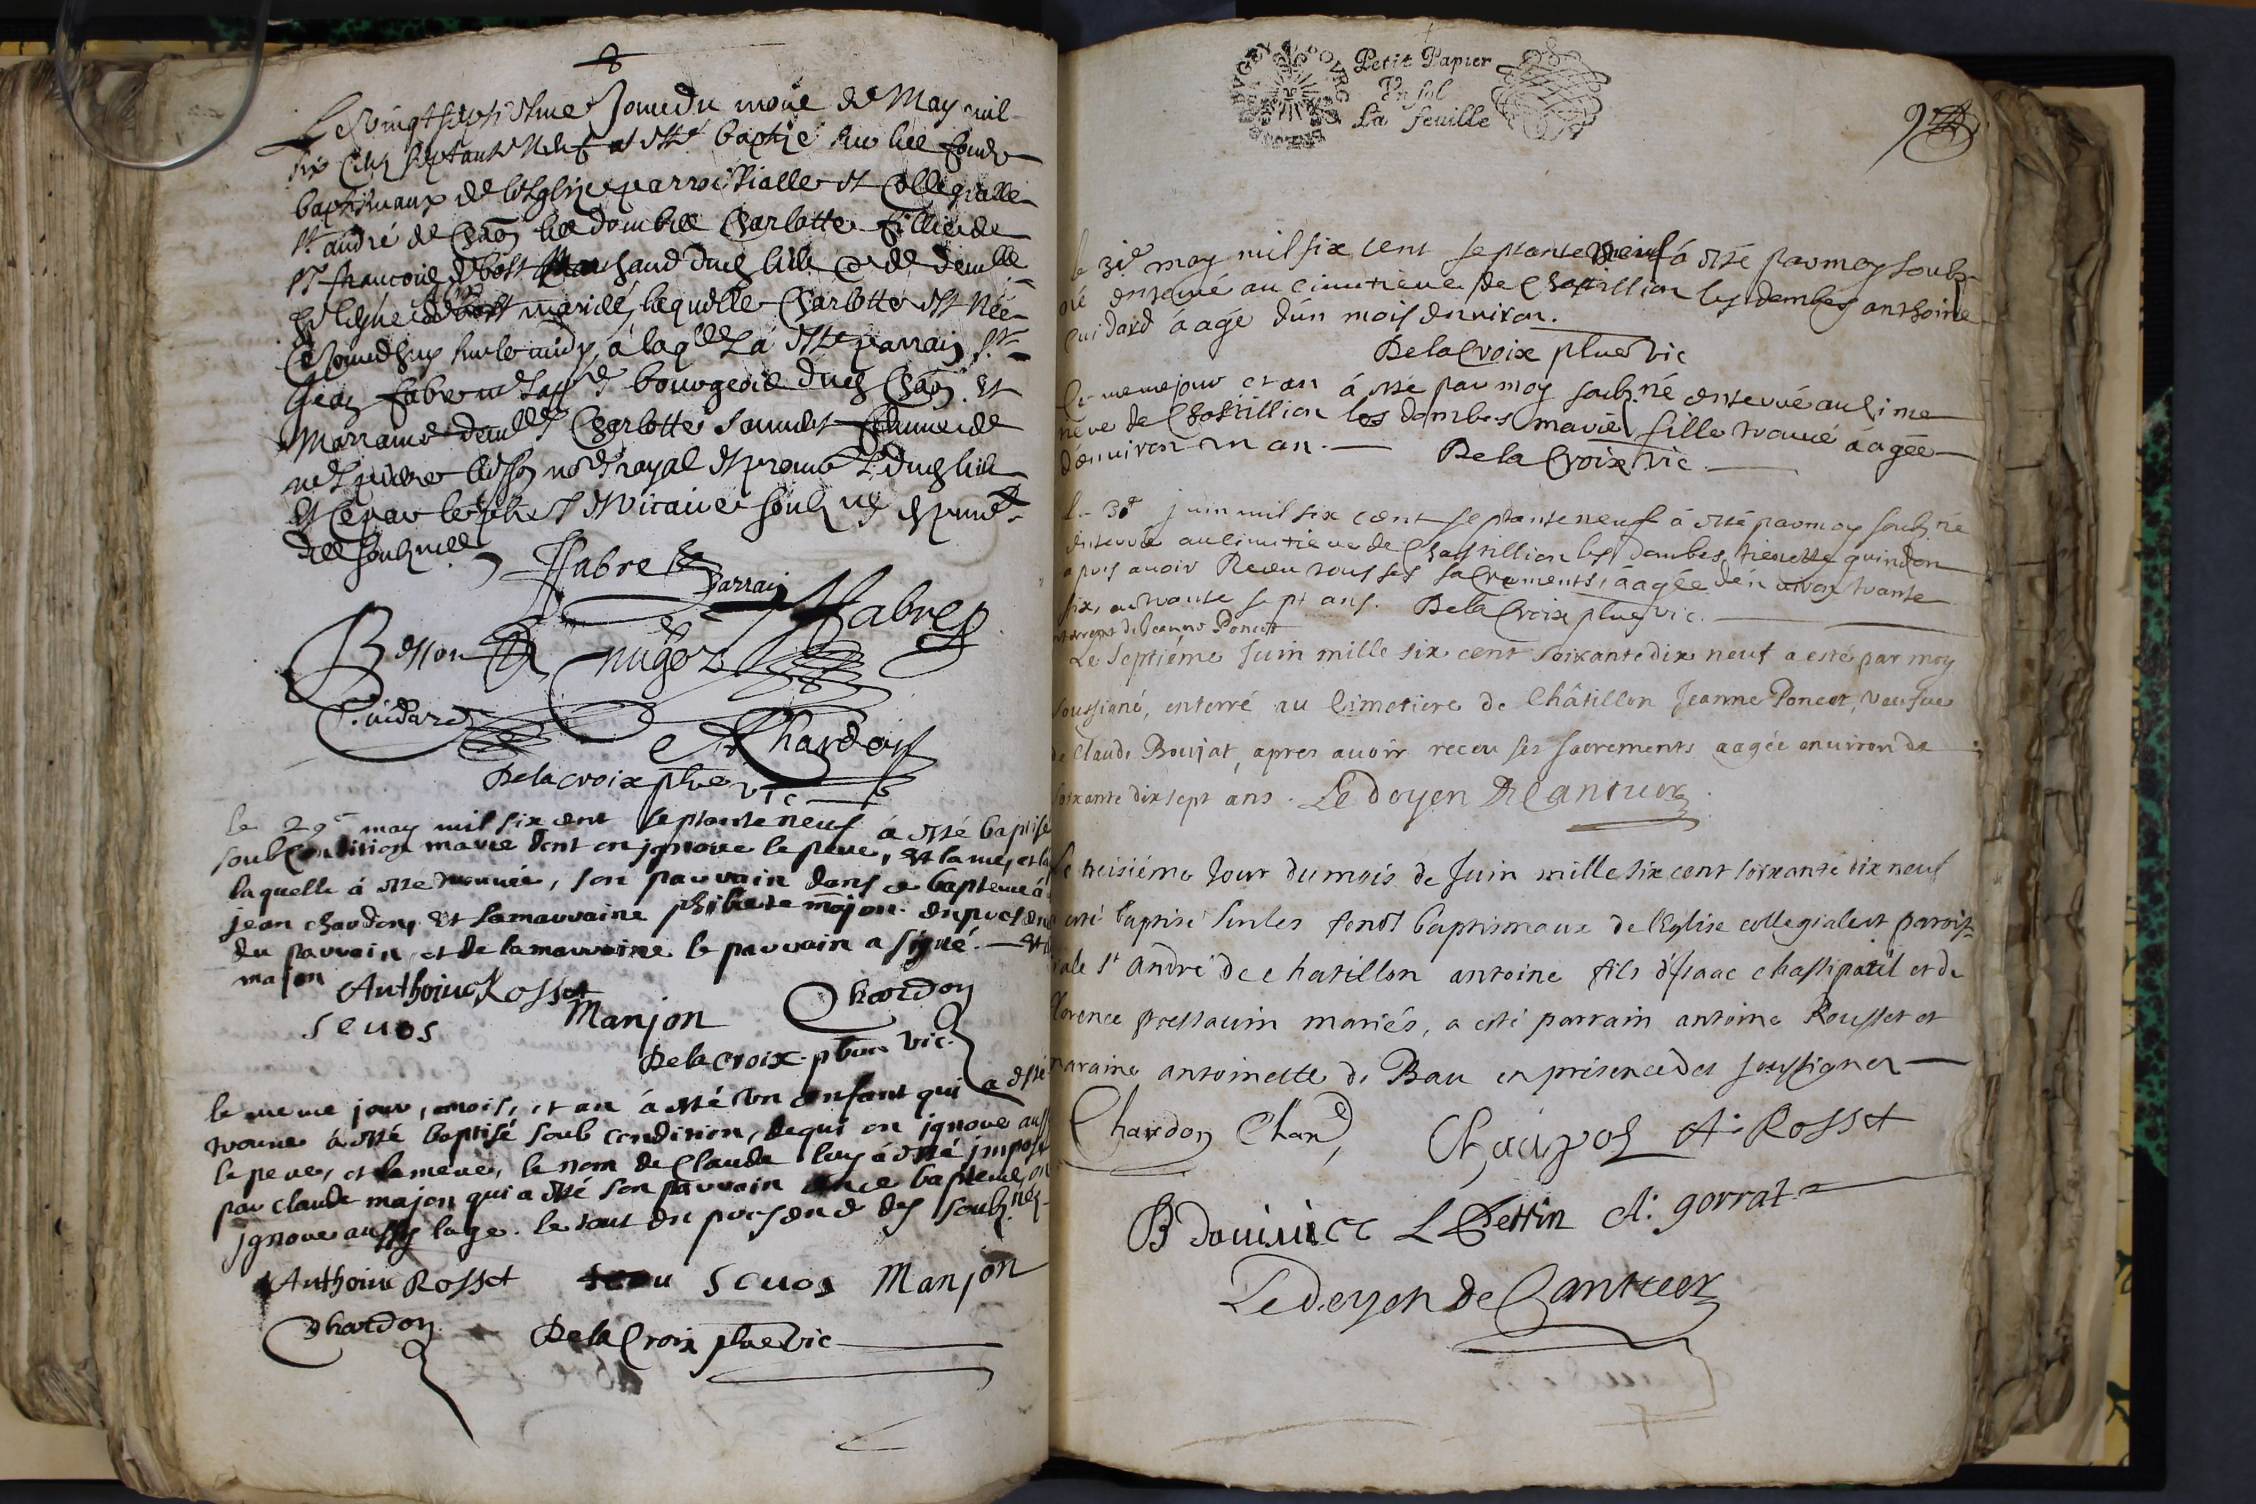 Le vingt septiesme Jour du mois de May mil
six cens septante neuf a esté baptisé sur les fondz
baptismaux de lesglize parroissialle et Collegialle
St andré de Chaon les dombes Charlotte fillie de
Sr francois marchand dud lieu et de demlle
mariés, laquelle Charlotte est née
Cejourdhuy sur le midy, à laqlle à esté parrain Sr
Jean fabre bourgeois dud Chaon et
Marraine demlle Charlotte femme de
royal et dud lieu
Et Ce par le pbre Vicaire soubzné
soubznés
Fabre
parrain
Fabre
Besson
Guidard
Chardon
Delacroix pbre vic
le 29e may mil six cent septante neuf à esté baptisé
soub condition marie dont on jgnore le pere, et la mere
laquelle à esté trouuée, son parrain dans ce bapteme à
jean chardon, et la marraine philiberte majon. en presence
du parrain, et de la marraine le parrain a signé. —
majon
Anthoine Rosset
Chardon
seuos
Manjon
Delacroix pbre vic.
le meme jour, mois, et an à esté un enfant qui a esté
trouué à esté baptisé soub condition, de qui on jgnore aussy
le pere, et la mere, le nom de Claude luy à esté imposé
par Claude majon qui a esté son parrain en ce bapteme, on
jgnore aussy lage. le tout en presence des soubz.nés
Anthoine Rosset seuos Manjon
Chardon
Delacroix pbre vic
Petit Papier
Vn sol
La feuille
le 31e may mil six cent septante neuf à esté par moy soubz
né enterré au cimetiere de Chastillion les dombes anthoine
Guidard àagé d'un mois enuiron.
Delacroix pbre vic
Le meme jour et an à esté par moy soubz.né enterré au cime
tiere de Chastillion les dombes marie fille trouué àagée
d'enuiron un an. — Delacroix vic.
Le 3e juin mil six cent septante neuf à esté par moy soubz.né
enterré au cimetiere de Chastillion les dombes, tienette guindon
apres auoir Receu tous ses sacrements àagée d'enuiron trante
six, ou trante sept ans. Delacroix pbre vic.
de Jeanne Poncet
Le septiéme Juin mille six cent soixante dix neuf a esté par moy
soussigné, enterré au Cimetiere de Châtillon Jeanne Poncet, veufue
de Claude Boujat, apres auoir receu ses sacrements aagée enuiron de
soixante dix sept ans. Le doyen De Cantuer
Le treisiéme Jour du mois de Juin mille six cent soixante dix neuf
a esté baptisé sur les fonds baptismaux de l'Eglise collegiale et parois-
siale St André de chatillon antoine fils d'Isaac chassipatil et de
florence pressauin mariés, a esté parrain antoine Rousset et
maraine antoinette de Bau en présence des soussignez —
Chardon Chan A. Rosset
B Dominicc L A. gorrat
Le Doyen de Cantuer